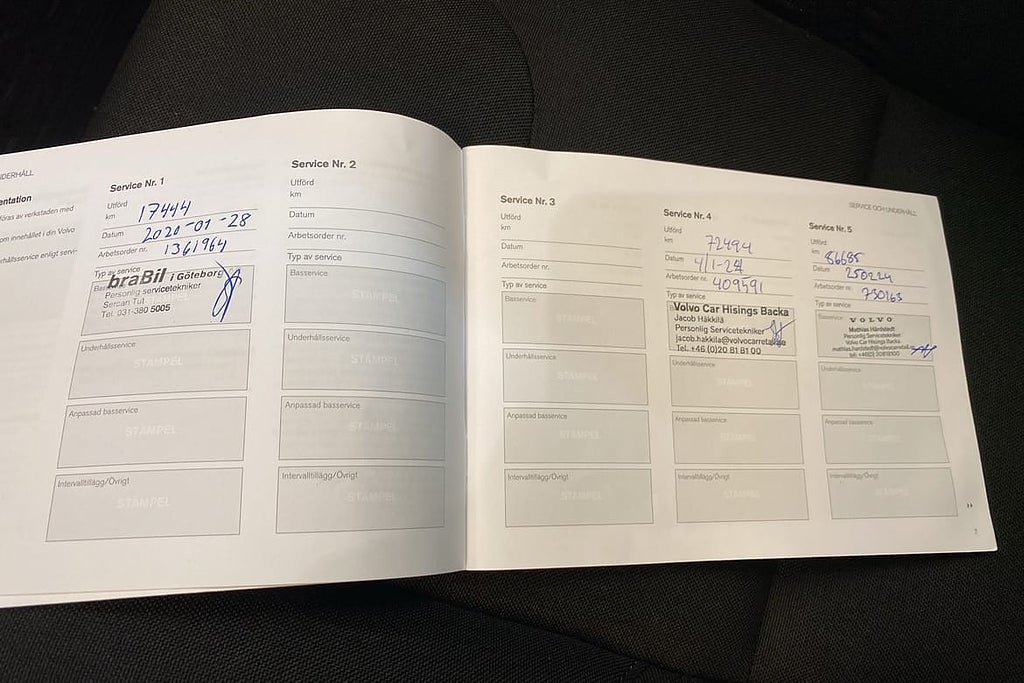 UNDERHÅLL
entation
föras av verkstaden med
om innehållet i din Volvo
rhållsservice enligt servi-
Service Nr. 1
Utförd
km 17444
Datum 2020-01-28
Arbetsorder nr. 1361964
Typ av service
braBil i Göteborg
Personlig servicetekniker
Sercan Tut
Tel. 031-380 5005
Underhållsservice
STÄMPEL
Anpassad basservice
STÄMPEL
Intervalltillägg/Övrigt
STÄMPEL
Service Nr. 2
Utförd
km
Datum
Arbetsorder nr.
Typ av service
Basservice
STÄMPEL
Underhållsservice
STÄMPEL
Anpassad basservice
STÄMPEL
Intervalltillägg/Övrigt
STÄMPEL
Service Nr. 3
Utförd
km
Datum
Arbetsorder nr.
Typ av service
Basservice
STÄMPEL
Underhållsservice
STÄMPEL
Anpassad basservice
STÄMPEL
Intervalltillägg/Övrigt
STÄMPEL
Service Nr. 4
Utförd
km 72494
Datum 4/1-24
Arbetsorder nr. 409591
Typ av service
Volvo Car Hisings Backa
Jacob Häkkilä
Personlig Servicetekniker
jacob.hakkila@volvocarretail.se
Tel. +46 (0)20 81 81 00
Underhållsservice
STÄMPEL
Anpassad basservice
STÄMPEL
Intervalltillägg/Övrigt
STÄMPEL
SERVICE OCH UNDERHÅLL
Service Nr. 5
Utförd
km 86685
Datum 250224
Arbetsorder nr. 730163
Typ av service
Basservice
VOLVO
Mathias Hårdstedt
Personlig Servicetekniker
Volvo Car Hisings Backa
mathias.hardstedt@volvocarretail.se
tel: +46(0) 20818100
Underhållsservice
STÄMPEL
Anpassad basservice
STÄMPEL
Intervalltillägg/Övrigt
STÄMPEL
7